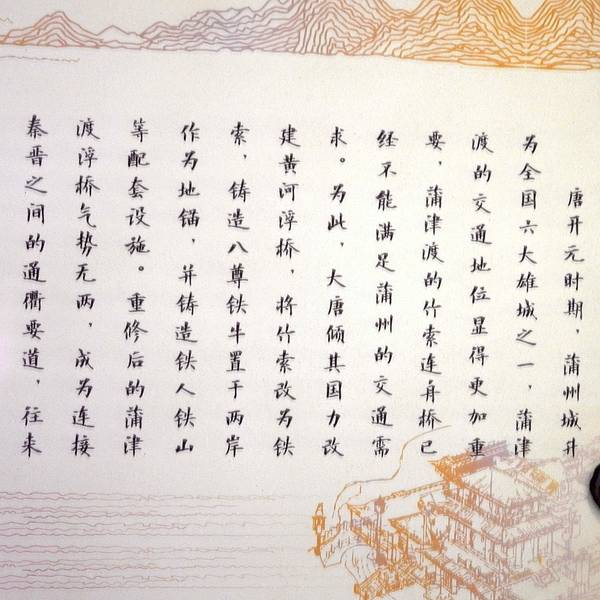 唐开元时期，蒲州城升
为全国六大雄城之一，蒲津
渡的交通地位显得更加重
要，蒲津渡的竹索连舟桥已
经不能满足蒲州的交通需
求。为此，大唐倾其国力改
建黄河浮桥，将竹索改为铁
索，铸造八尊铁牛置于两岸
作为地锚，并铸造铁人铁山
等配套设施。重修后的蒲津
渡浮桥气势无两，成为连接
秦晋之间的通衢要道，往来